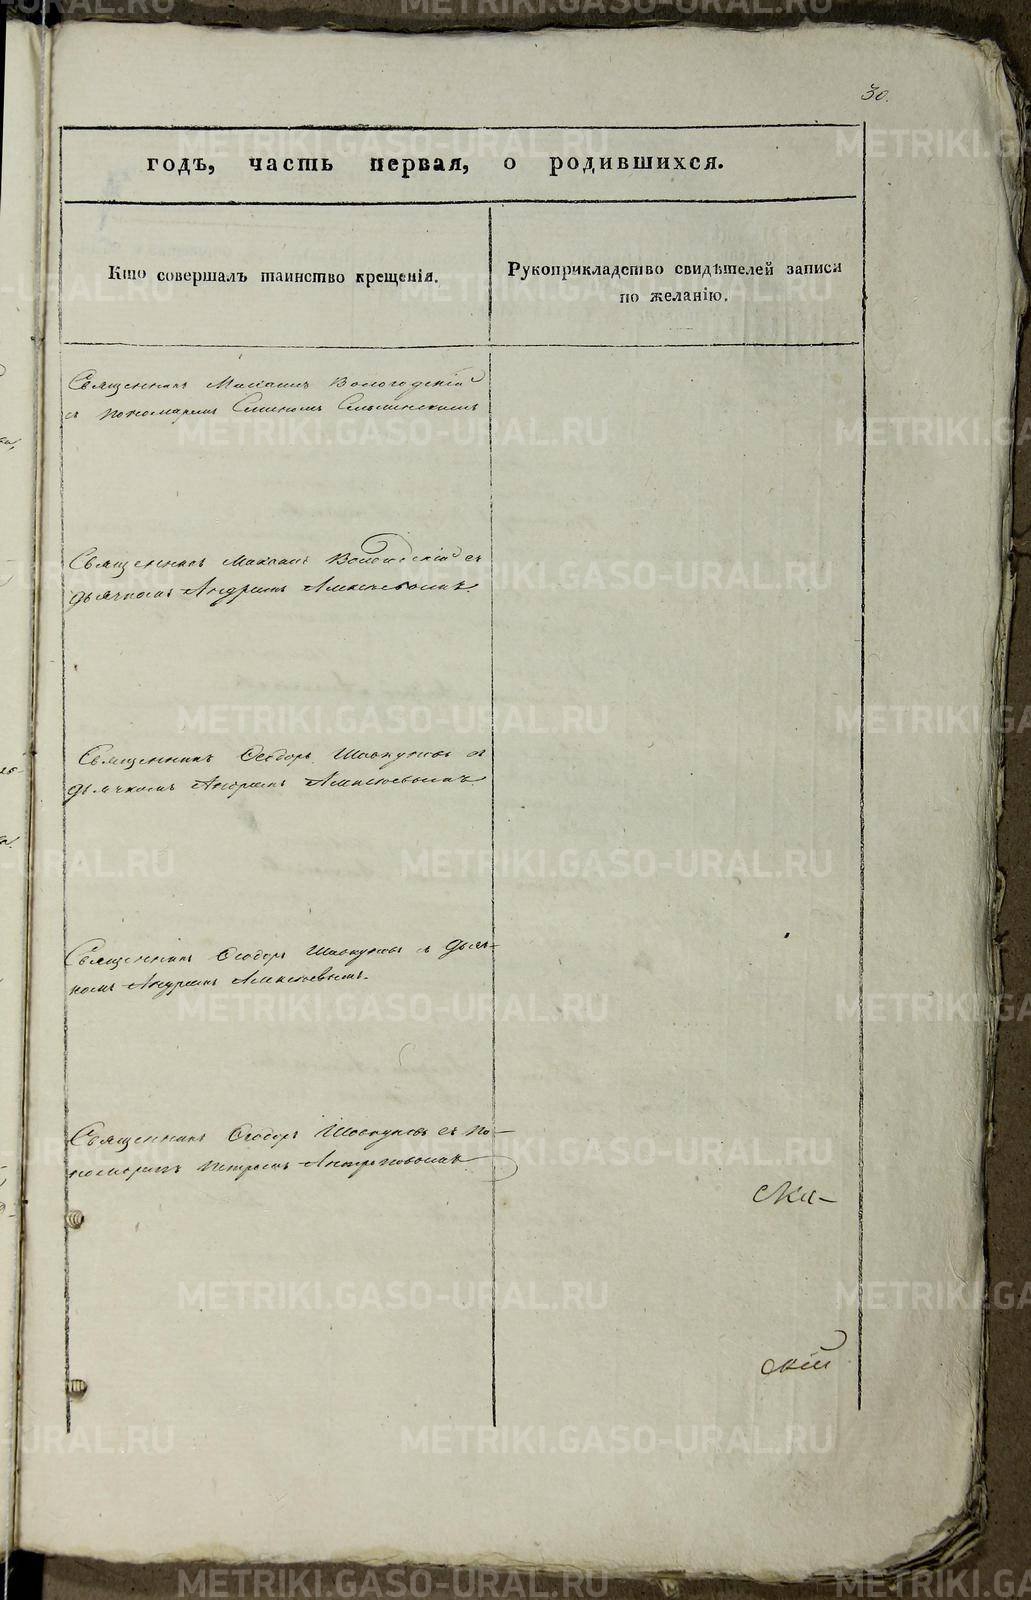 30.
годъ, часть первая, о родившихся.
Кто совершалъ таинство крещенія.
Рукоприкладство свидѣтелей записи
по желанію.
Священникъ Вологодскій
съ пономаремъ
Священникъ Вологодскій съ
дьячкомъ Андреемъ Алексѣевымъ.
Священникъ Ѳеодоръ Шавкуновъ съ
дьячкомъ Андреемъ Алексѣевымъ.
Священникъ Ѳеодоръ Шавкуновъ съ дьяч-
комъ Андреемъ Алексѣевымъ.
Священникъ Ѳеодоръ Шавкуновъ съ по-
номаремъ Петромъ Антроповымъ
ска-
скій
METRIKI.GASO-URAL.RU